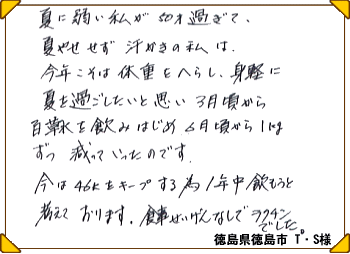 夏に弱い私が50才過ぎて、
夏やせせず汗かきの私は、
今年こそは体重をへらし、身軽に
夏を過ごしたいと思い3月頃から
百 を飲みはじめ6月頃から1kg
ずつ減っていったのです。
今は46Kをキープする為1年中飲もうと
考えております。食事せいげんなしでラクチン
でした
徳島県徳島市 T・S様